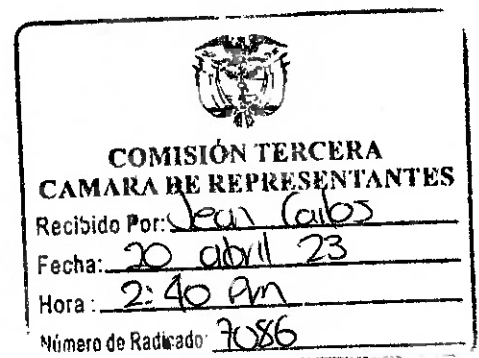 COMISIÓN TERCERA
CAMARA DE REPRESENTANTES
Recibido Por: Jean Carlos
Fecha: 20 abril 23
Hora: 2:40 pm
Número de Radicado: 7086